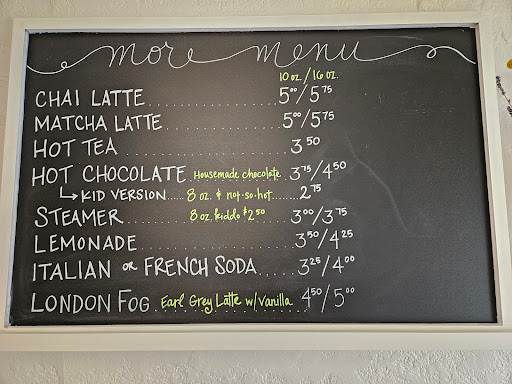 more menu
10 oz. / 16 oz.
CHAI LATTE 5.00/5.75
MATCHA LATTE 5.00/5.75
HOT TEA 3.50
HOT CHOCOLATE Housemade chocolate 3.75/4.50
↳ KID VERSION 8 oz. & not-so-hot 2.75
STEAMER 8 oz. kiddo $2.50 3.00/3.75
LEMONADE 3.50/4.25
ITALIAN or FRENCH SODA 3.25/4.00
LONDON FOG Earl Grey Latte w/ Vanilla 4.50/5.00